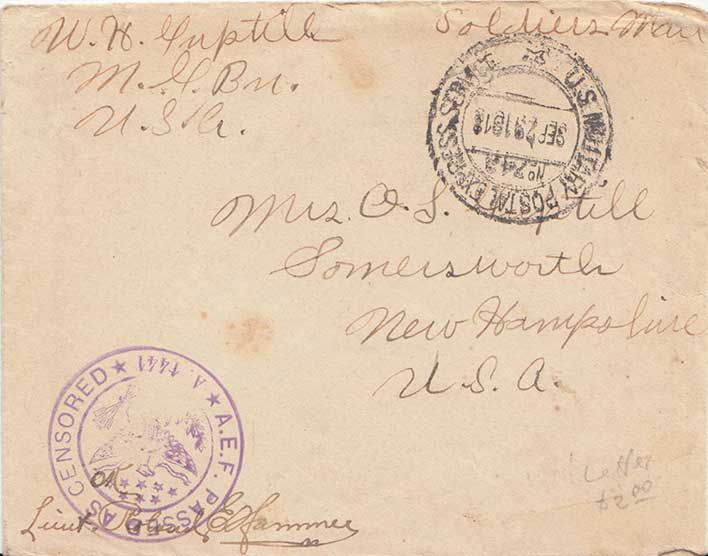 W. H. Guptill
Soldiers Mail
M. G. Bn.
U.S.A.
U.S. MILITARY POSTAL EXPRESS SERVICE
No 742
SEP 29 1918
Mrs. O. S. Guptill
Somersworth
New Hampshire
U.S.A.
A.E.F. PASSED AS CENSORED
A. 4441
OK
Lieut.
Letter
$2.00